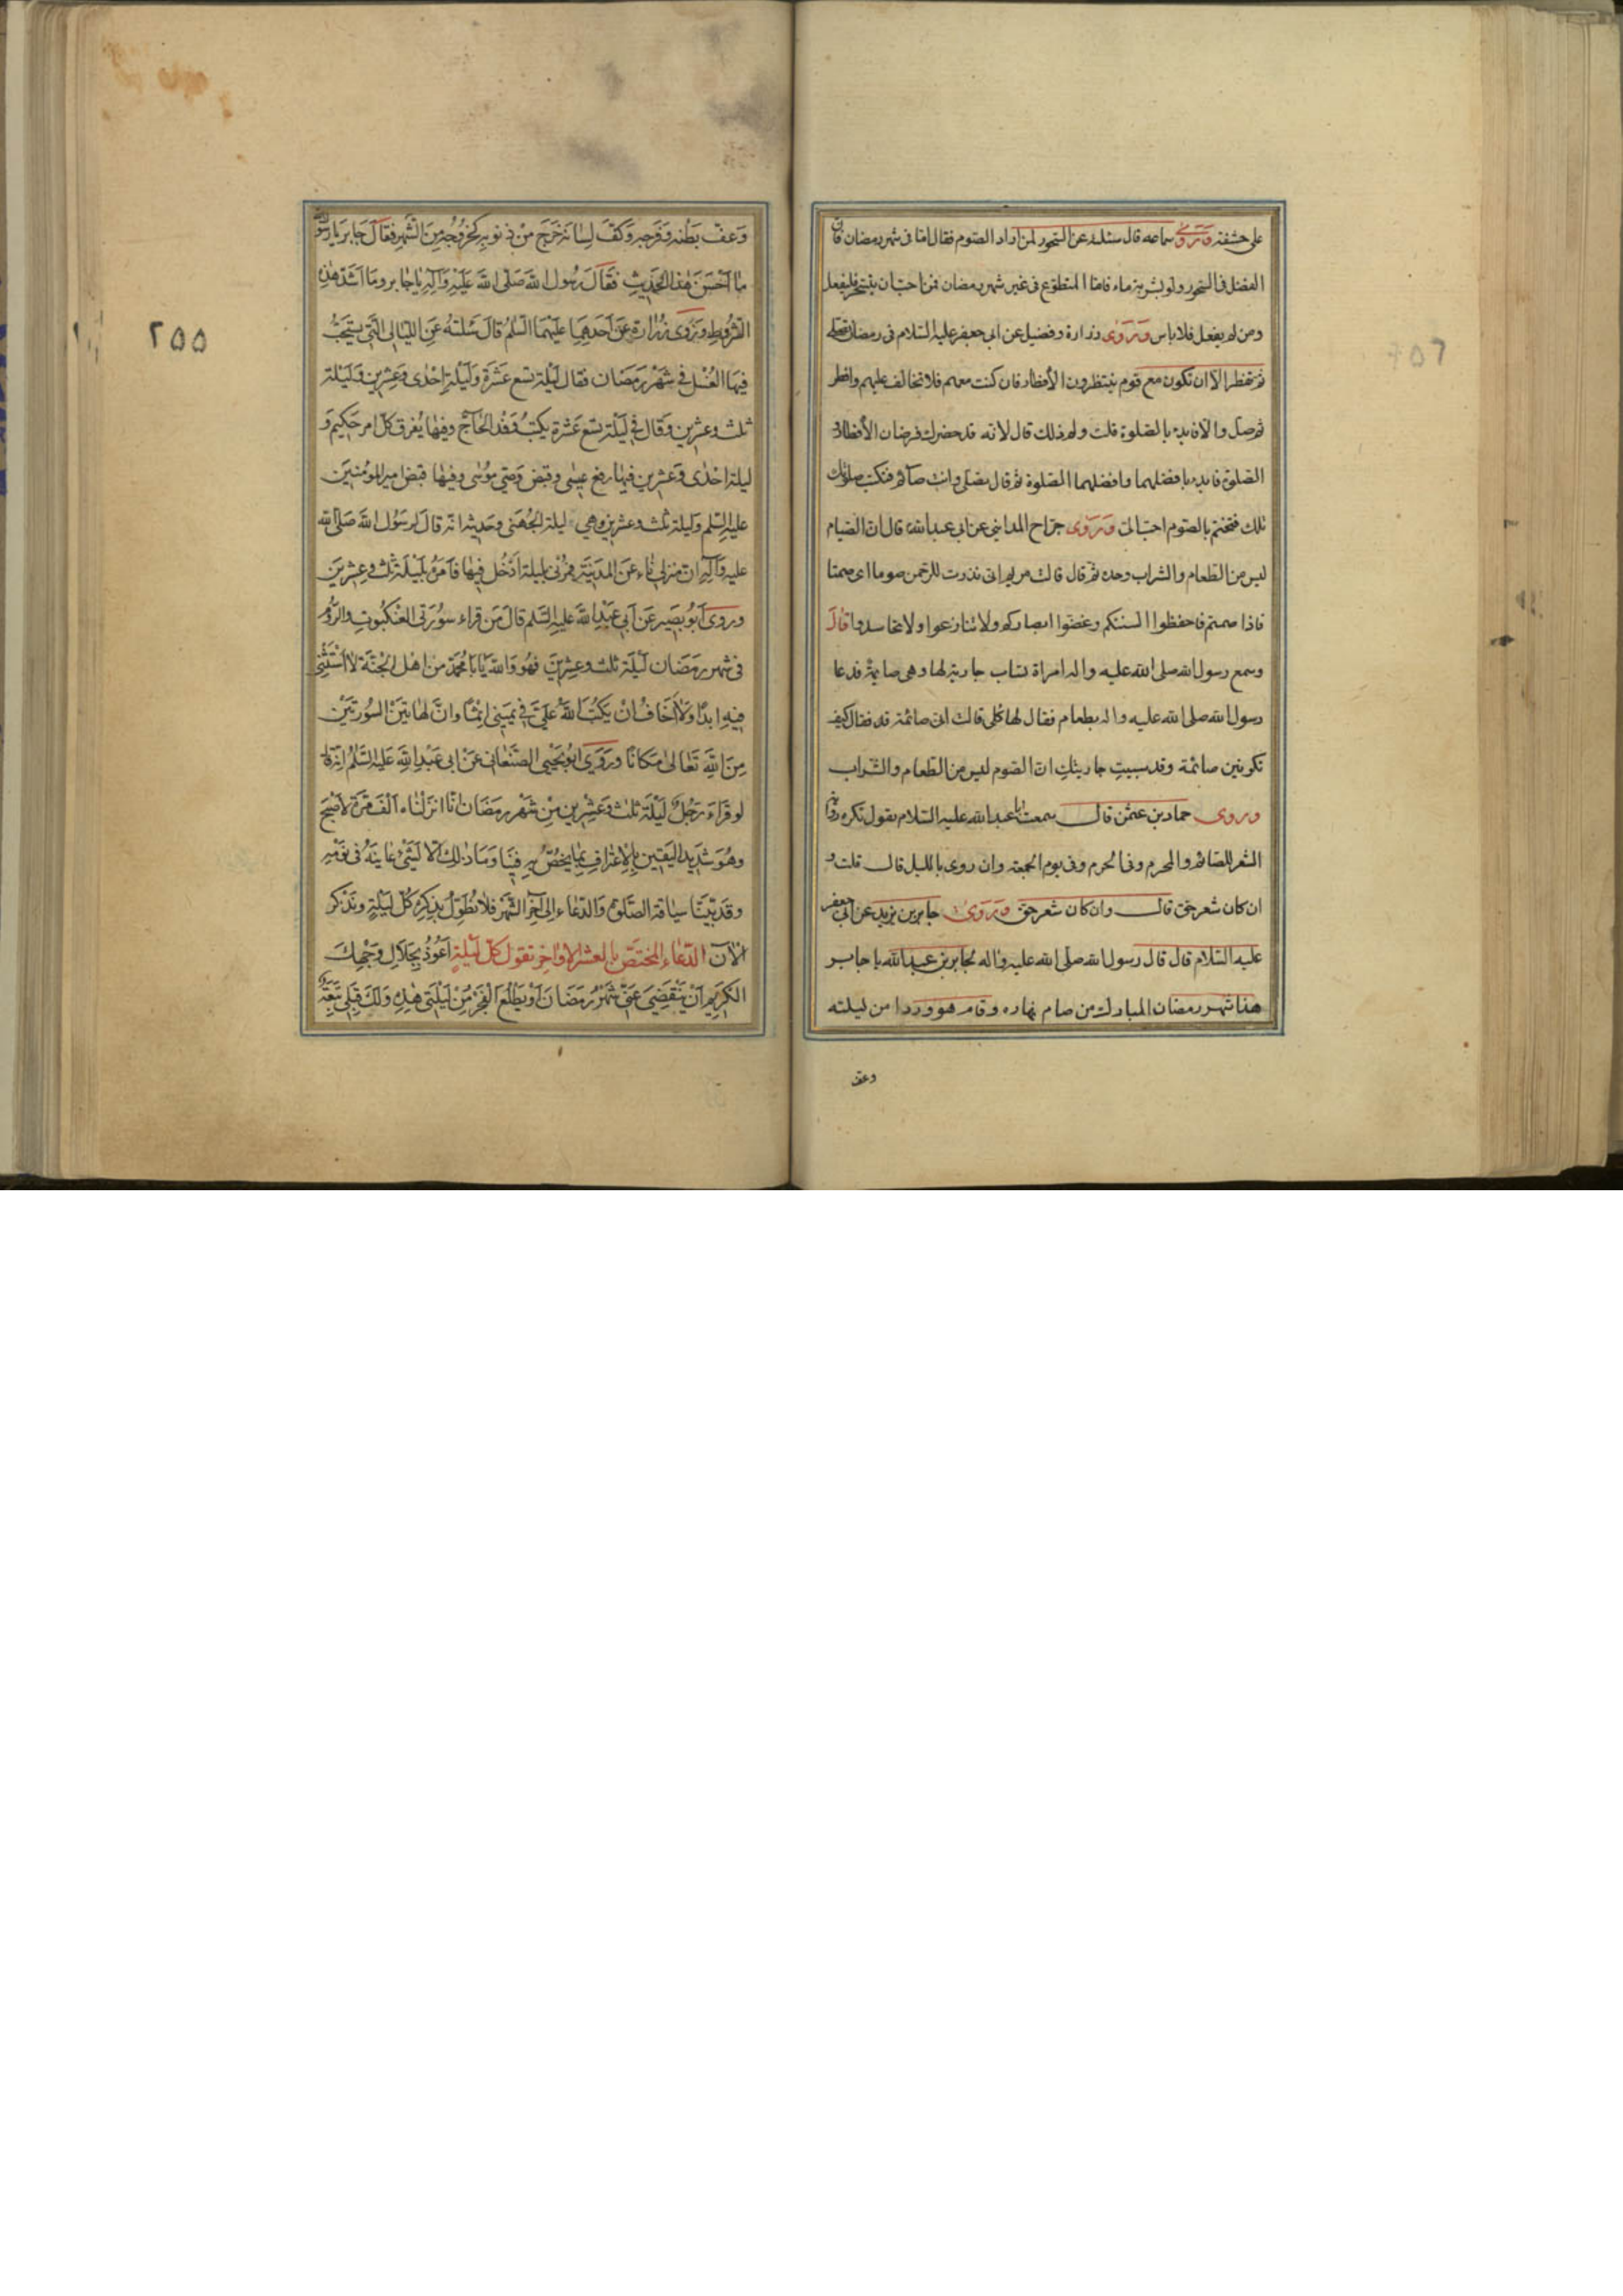 على حشفة وروى سماعه قال سئلته عن السحور لمن اراد الصوم فقال اما فى شهر رمضان فان
الفضل فى السحور ولو بشربة ماء فامّا المتطوّع فى غير شهر رمضان فمن احبّ ان يتسحّر فليفعل
ومن لم يفعل فلا باس وروى زرارة وفضيل عن ابى جعفر عليه السّلام فى رمضان تصلى
ثم تفطر الّا ان تكون مع قوم ينتظرون الأفطار فان كنت معهم فلا تخالف عليهم وافطر
ثم صلّ والّا فابدء بالصّلوة قلت ولم ذلك قال لانه قد حضرك فرضان الأفطار و
الصّلوة فابدء بافضلهما وافضلهما الصّلوة ثم قال تصلى وانت صائم فتكتب صلوتك
تلك فتختم بالصّوم احبّ الىّ وروى جرّاح المداينى عن ابى عبد الله قال انّ الصّيام
ليس من الطّعام والشّراب وحده ثم قال قالت مريم انى نذرت للرّحمن صوما اى صمتا
فاذا صمتم فاحفظوا السنتكم وغضّوا ابصاركم ولا تنازعوا ولا تحاسدوا قال
وسمع رسول الله صلى الله عليه واله امراة تساب جارية لها وهى صائمة فدعا
رسول الله صلى الله عليه واله بطعام فقال لها كلى قالت انى صائمة فقال كيف
تكونين صائمة وقد سببت جاريتك انّ الصّوم ليس من الطّعام والشّراب
وروى حماد بن عثمن قال سمعت ابا عبد الله عليه السّلام يقول تكره رواية
الشعر للصّائم والمحرم وفى الحرم وفى يوم الجمعة وان روى بالليل قال قلت و
ان كان شعر حقّ قال وان كان شعر حقّ وروى جابر بن يزيد عن ابى جعفر
عليه السّلام قال قال رسول الله صلى الله عليه واله لجابر بن عبد الله يا جابر
هذا شهر رمضان المبارك من صام نهاره وقام وردا من ليلته
وعف
وَعفّ بَطْنه وَفَرجه وَكَفّ لِسٰانه خَرَجَ مِنْ ذنوبه كخروجه مِنَ الشَّهر فقٰالَ جابر يٰا رسول الله
مٰا اَحْسَنَ هٰذا الحَديثِ فَقٰالَ رسُول الله صَلّى الله عَلَيْه وَآلِه يٰا جٰابر ومٰا اَشَدّ هٰذه
الشّروطِ وَرَوٰى زُرٰارَة عَنْ اَحَدِهِمٰا عَلَيْهمَا السّلم قٰالَ سَئلتُه عَنِ اللّيٰالى الَّتى يستَحَبُّ
فيهَا الغُسْل فى شَهْر رَمَضٰان فقال لَيْلَة تسع عَشَرَة وَلَيْلَة اِحْدٰى وَعِشرين وَلَيْلَة
ثلث وعشرين وَقٰال فى لَيْلَة تسع عَشَرَة يكتب وَفْد الحٰاجّ وفيهٰا يُفرق كلّ امر حَكيم وَ
ليلة احْدٰى وَعشرين فيهٰا رفع عيسٰى وقبض وَصىّ مُوسٰى وفيهٰا قبض امير المومنين
عليه السّلم وليلة ثلث وعشرين وهى ليلة الجُهَنى وَحَديثه انّه قٰالَ لِرَسُول الله صَلّى الله
عليه وَآلِه انّ منزلى نٰاء عَنِ المَدينَة فمُرْنى بليلة اَدْخُل فيهٰا فَاَمَرَه بِلَيْلَة ثلث وَعِشرينَ
وروى اَبُو بَصير عَنْ اَبى عَبْدِ الله عليه السّلم قٰالَ مَن قراء سُورَتى العَنْكَبُوتِ وَالرّوم
فى شَهر رمَضٰان لَيْلَة ثلث وعشرينَ فَهُو وَاللّه يٰا بٰا مُحمّد من اَهْل الجنَّة لٰا اَستَثْنى
فيه ابدًا وَلٰا اَخٰافُ اَنْ يَكْتُبَ اللهُ عَلَىّ فى يَمينى اِثْمًا وَانّ لهٰاتين السّورتَيْن
مِنَ اللهِ تَعٰالىٰ مَكانًا وَرَوىٰ ابُو يَحْيَى الصَّنعٰانى عَنْ ابى عَبْدِ الله عَلَيه السّلم انّه قال
لو قَرَاءَ رَجُلٌ لَيْلَة ثلث وَعِشرين مِن شَهْر رمَضَان انّا انزلنٰاه الْفَ مَرّة لاَصْبَحَ
وهُوَ شَديد اليَقين بِالِاعْترافِ بمٰا يخُصُّ بِه فينٰا وَمٰا ذٰلِكَ الّا لِشَىْءٍ عٰايَنَه فى نَوْمه
وقَد بيّنّا سيٰاقة الصّلٰوة وَالدّعاء اِلى آخِر الشّهر فلا نُطَوّل بذكره كلّ لَيْلَةٍ وَنَذْكر
الآن الدّعاء المختصّ بالعشر الاواخر تقول كلّ لَيْلَةٍ اَعُوذُ بِجَلالِ وَجْهِكَ
الكَريم اَنْ يَنْقَضِىَ عَنّى شَهْرُ رَمَضٰان اَوْ يَطْلُعَ الفَجْر مِنْ لَيْلَتى هٰذِه وَلَكَ قِبَلى تَبِعَةٌ
٢٥٥